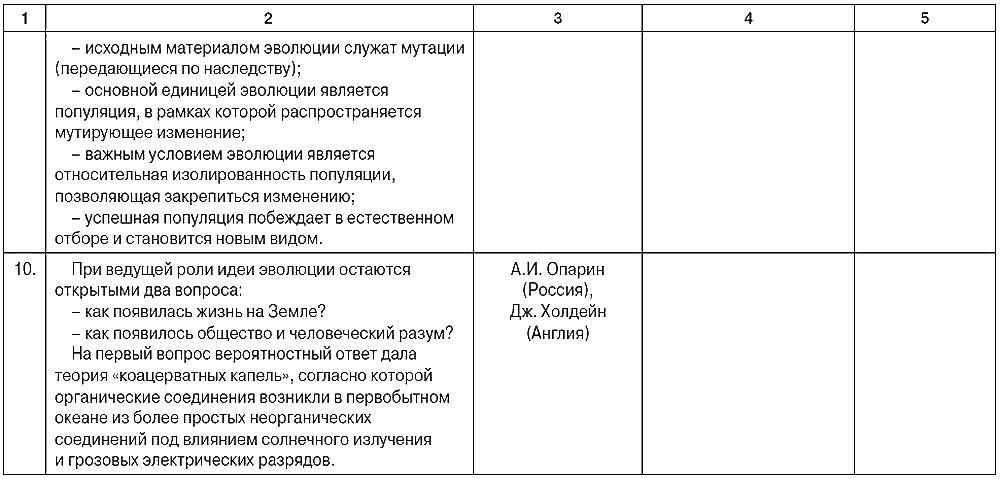 1 2 3 4 5
– исходным материалом эволюции служат мутации
(передающиеся по наследству);
– основной единицей эволюции является
популяция, в рамках которой распространяется
мутирующее изменение;
– важным условием эволюции является
относительная изолированность популяции,
позволяющая закрепиться изменению;
– успешная популяция побеждает в естественном
отборе и становится новым видом.
10.
При ведущей роли идеи эволюции остаются
открытыми два вопроса:
– как появилась жизнь на Земле?
– как появилось общество и человеческий разум?
На первый вопрос вероятностный ответ дала
теория «коацерватных капель», согласно которой
органические соединения возникли в первобытном
океане из более простых неорганических
соединений под влиянием солнечного излучения
и грозовых электрических разрядов.
А.И. Опарин
(Россия),
Дж. Холдейн
(Англия)